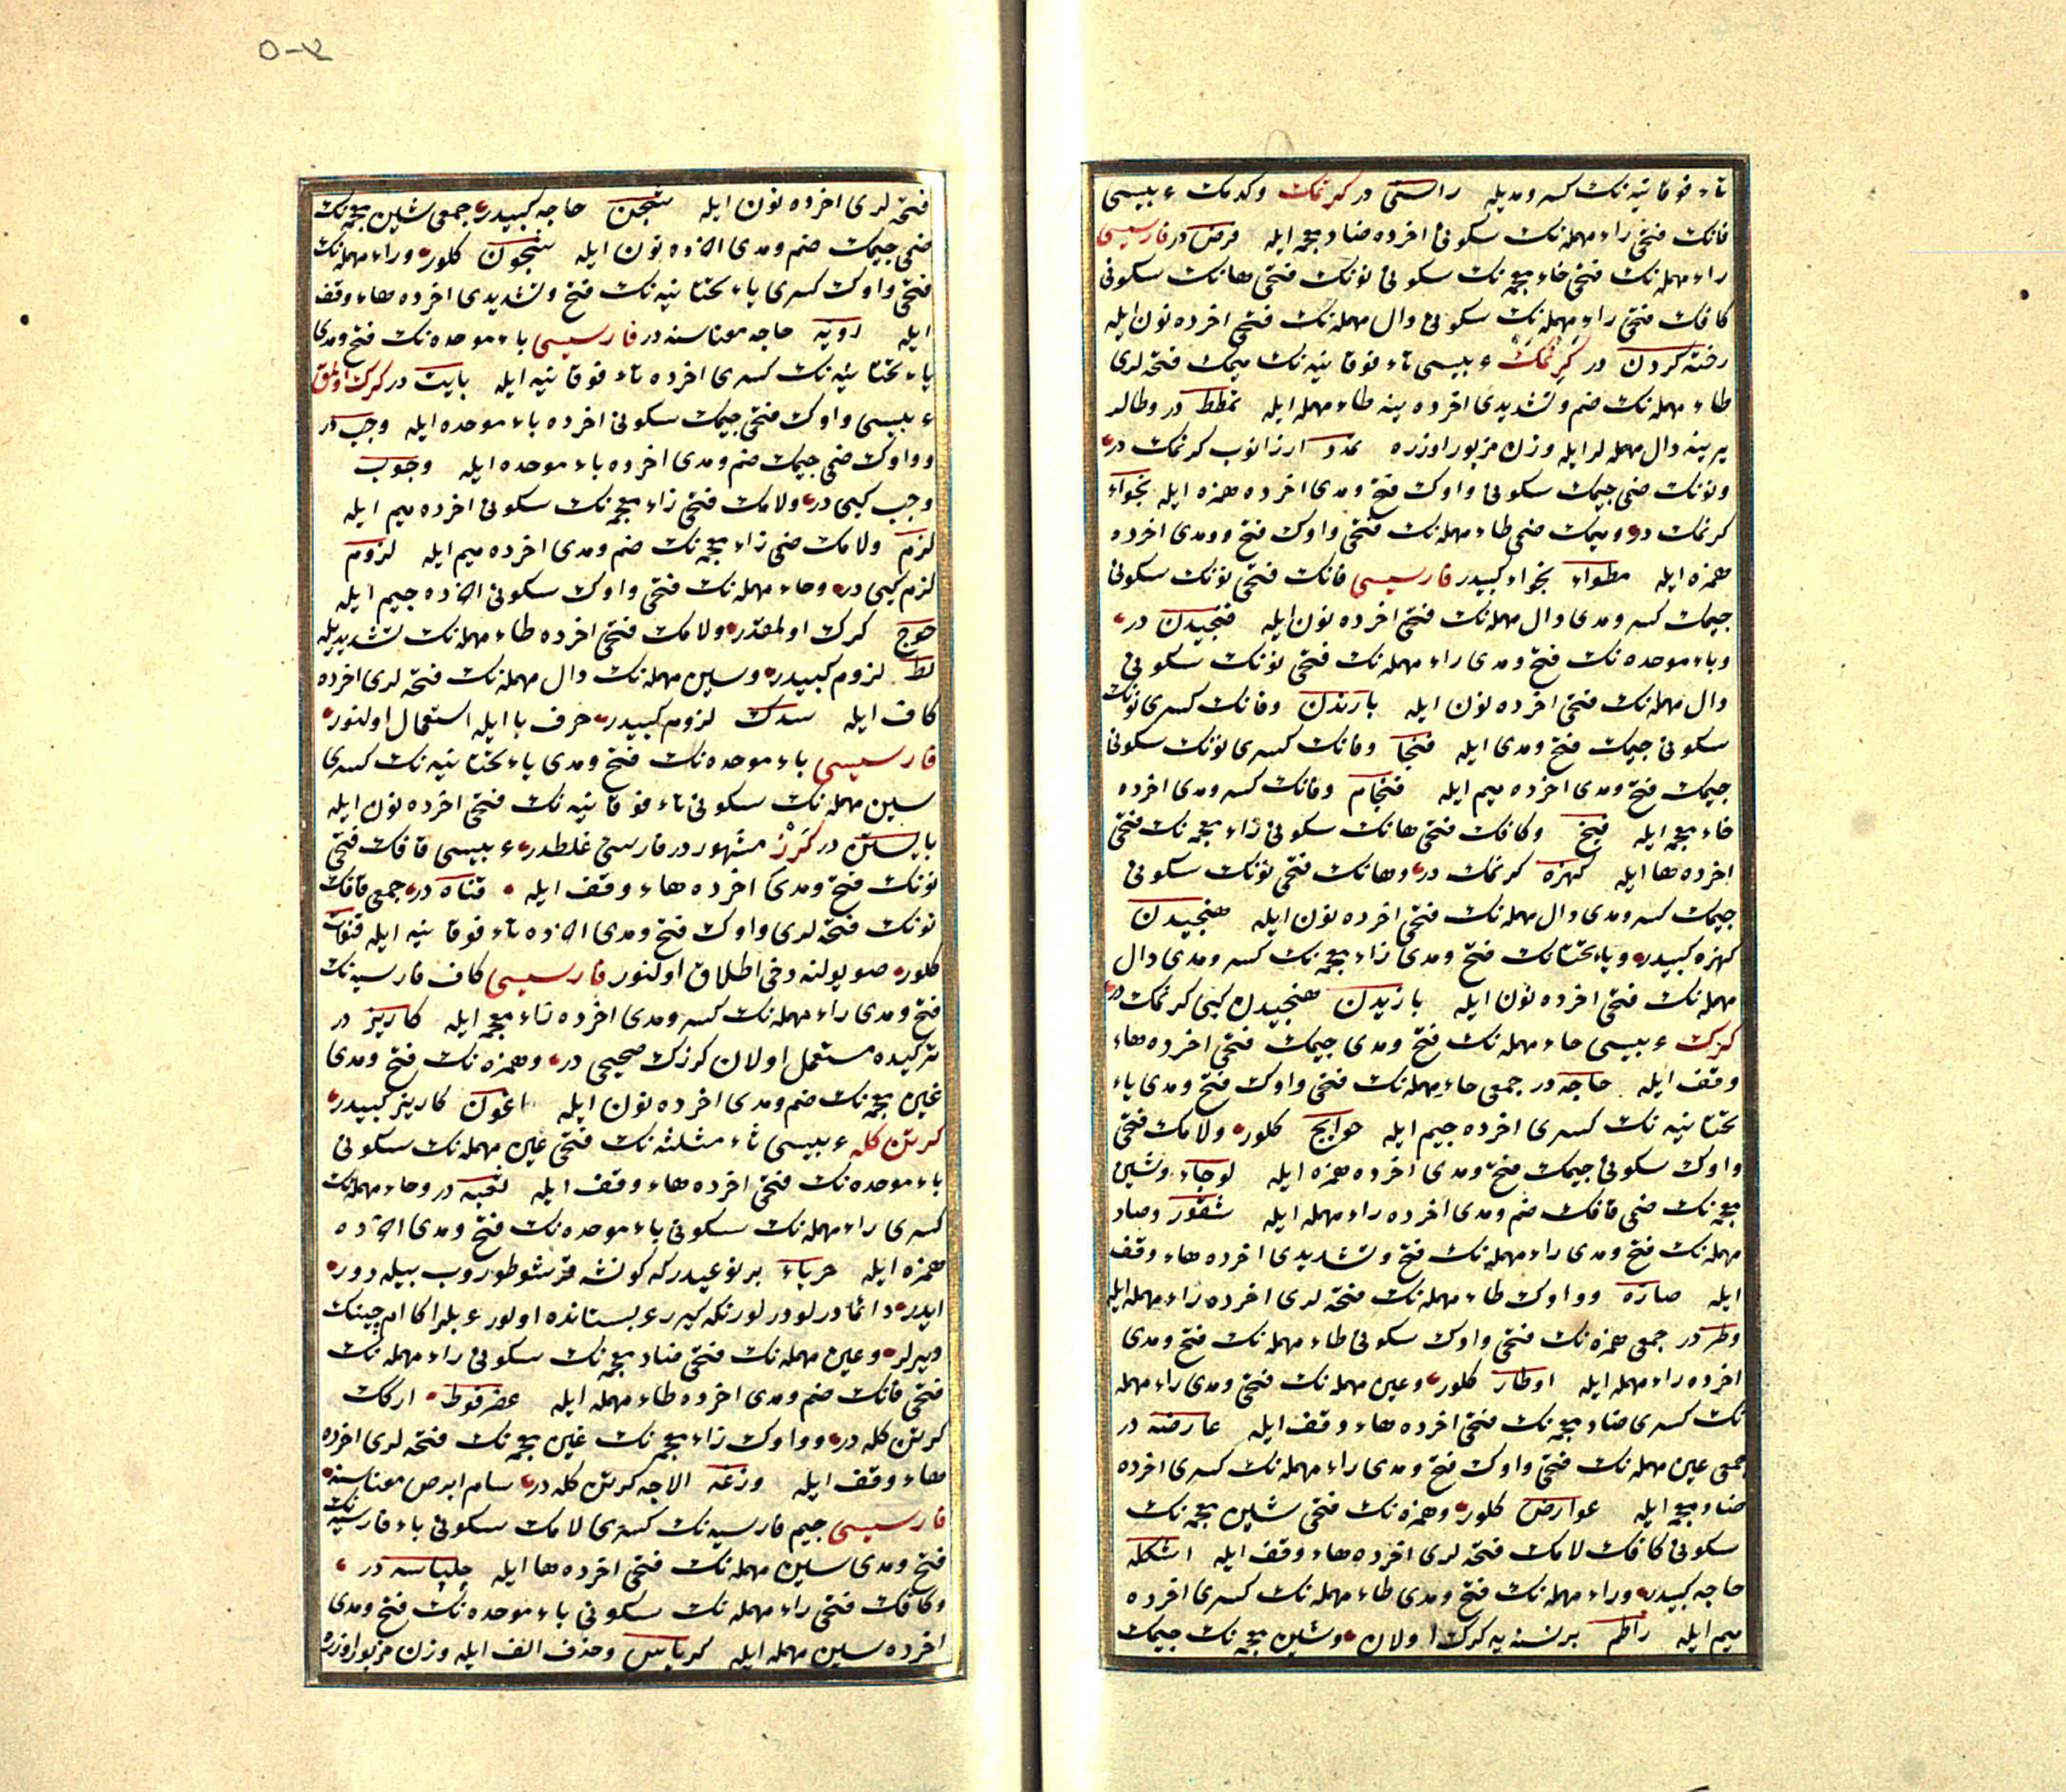 تاء فوقانیه نك كسر ومدیله راستی در كرنمك وكدمك عربیسی
فانك فتحی راء مهمله نك سكونی اخرده ضاد معجمه ایله فرض در فارسیسی
راء مهمله نك فتحی خاء معجمه نك سكونی نونك فتحی هانك سكونی
كافك فتحی راء مهمله نك سكونی دال مهمله نك فتحی اخرده نون ایله
رخنه كردن در كرنمك عربیسی تاء فوقانیه نك میمك فتحه لری
طاء مهمله نك ضم وتشدیدی اخرده ینه طاء مهمله ایله تمطط در وطالر
یرینه دال مهمله لر ایله وزن مزبور اوزره تمدد ارزانوب كرنمك در
ونونك ضمی جیمك سكونی واوك فتح ومدی اخرده همزه ایله نجواء
كرنمك در ومیمك ضمی طاء مهمله نك فتحی واوك فتح ومدی اخرده
همزه ایله مطواء نجواء كبیدر فارسیسی فانك فتحی نونك سكونی
جیمك كسر ومدی دال مهمله نك فتحی اخرده نون ایله فنجیدن در
وباء موحده نك فتح ومدی راء مهمله نك فتحی نونك سكونی
دال مهمله نك فتحی اخرده نون ایله بارندن وفانك كسری نونك
سكونی جیمك فتح ومدی ایله فنجا وفانك كسری نونك سكونی
جیمك فتح ومدی اخرده میم ایله فنجام وفانك كسر ومدی اخرده
خاء معجمه ایله فیخ وكافك فتحی هانك سكونی زاء معجمه نك فتحی
اخرده ها ایله كهزه كرنمك در وهانك فتحی نونك سكونی
جیمك كسر ومدی دال مهمله نك فتحی اخرده نون ایله هنجیدن
كهزه كبیدر ویاء تحتانك فتح ومدی زاء معجمه نك كسر ومدی دال
مهمله نك فتحی اخرده نون ایله یازیدن هنجیدن كبی كرنمك در
كرك عربیسی حاء مهمله نك فتح ومدی جیمك فتحی اخرده هاء
وقف ایله حاجه در جمعی حاء مهمله نك فتحی واوك فتح ومدی یاء
تحتانیه نك كسری اخرده جیم ایله حوایج كلور ولامك فتحی
واوك سكونی جیمك فتح ومدی اخرده همزه ایله لوجاء وشین
معجمه نك ضمی قافك ضم ومدی اخرده راء مهمله ایله شقور وصاد
مهمله نك فتح ومدی راء مهمله نك فتح وتشدیدی اخرده هاء وقف
ایله صاره وواوك طاء مهمله نك فتحه لری اخرده راء مهمله ایله
وطر در جمعی همزه نك فتحی واوك سكونی طاء مهمله نك فتح ومدی
اخرده راء مهمله ایله اوطار كلور وعین مهمله نك فتحی ومدی راء مهمله
نك كسری ضاد معجمه نك فتحی اخرده هاء وقف ایله عارضه در
جمعی عین مهمله نك فتحی واوك فتح ومدی راء مهمله نك كسری اخرده
ضاد معجمه ایله عوارض كلور وهمزه نك فتحی شین معجمه نك
سكونی كافك لامك فتحه لری اخرده هاء وقف ایله اشكله
حاجه كبیدر وراء مهمله نك فتح ومدی طاء مهمله نك كسری اخرده
میم ایله راطم برنسنه یه كرك اولان وشین معجمه نك جیمك
فتحه لری اخرده نون ایله شجن حاجه كبیدر جمعی شین معجمه نك
ضمی جیمك ضم ومدی اخرده نون ایله شجون كلور وراء مهمله نك
فتحی واوك كسری یاء تحتانیه نك فتح وتشدیدی اخرده هاء وقف
ایله رویه حاجه معناسنه در فارسیسی باء موحده نك فتح ومدی
یاء تحتانیه نك كسری اخرده تاء فوقانیه ایله بایت در كرك اولمق
عربیسی واوك فتحی جیمك سكونی اخرده باء موحده ایله وجب در
وواوك ضمی جیمك ضم ومدی اخرده باء موحده ایله وجوب
وجب كبی در ولامك فتحی زاء معجمه نك سكونی اخرده میم ایله
لزم ولامك ضمی زاء معجمه نك ضم ومدی اخرده میم ایله لزوم
لزم كبی در وحاء مهمله نك فتحی واوك سكونی اخرده جیم ایله
حوج كرك اولمقدر ولامك فتحی اخرده طاء مهمله نك تشدیدیله
لط لزوم كبیدر وسین مهمله نك دال مهمله نك فتحه لری اخرده
كاف ایله سدك لزوم كبیدر حرف با ایله استعمال اولنور
فارسیسی باء موحده نك فتح ومدی یاء تحتانیه نك كسری
سین مهمله نك سكونی تاء فوقانیه نك فتحی اخرده نون ایله
بایستن در كرز مشهور در فارسی غلطدر عربیسی قافك فتحی
نونك فتح ومدی اخرده هاء وقف ایله قناه در جمعی قافك
نونك فتحه لری واوك فتح ومدی اخرده تاء فوقانیه ایله قنوات
كلور صو یولنه دخی اطلاق اولنور فارسیسی كاف فارسیه نك
فتح ومدی راء مهمله نك كسر ومدی اخرده زاء معجمه ایله كاریز در
تركیده مستعمل اولان كرزك صحیحی در وهمزه نك فتح ومدی
غین معجمه نك ضم ومدی اخرده نون ایله اغون كاریز كبیدر
كرتن كله عربیسی ثاء مثلثه نك فتحی عین مهمله نك سكونی
باء موحده نك فتحی اخرده هاء وقف ایله ثعبه در وحاء مهمله نك
كسری راء مهمله نك سكونی باء موحده نك فتح ومدی اخرده
همزه ایله حرباء بر نوعیدر كه كونشه قرشو طوروب بیله دور
ایدر دائما درلو در لو رنكه كیرر عربستانده اولور عربلر اكا ام حبینك
دیرلر وعین مهمله نك فتحی ضاد معجمه نك سكونی راء مهمله نك
فتحی فانك ضم ومدی اخرده طاء مهمله ایله عضرفوط اركك
كرتن كله در وواوك زاء معجمه نك غین معجمه نك فتحه لری اخرده
هاء وقف ایله وزغه الاجه كرتن كله در سام ابرص معناسنه
فارسیسی جیم فارسیه نك كسری لامك سكونی باء فارسیه نك
فتح ومدی سین مهمله نك فتحی اخرده ها ایله چلپاسه در
وكافك فتحی راء مهمله نك سكونی باء موحده نك فتح ومدی
اخرده سین مهمله ایله كرباس وحذف الف ایله وزن مزبور اوزره